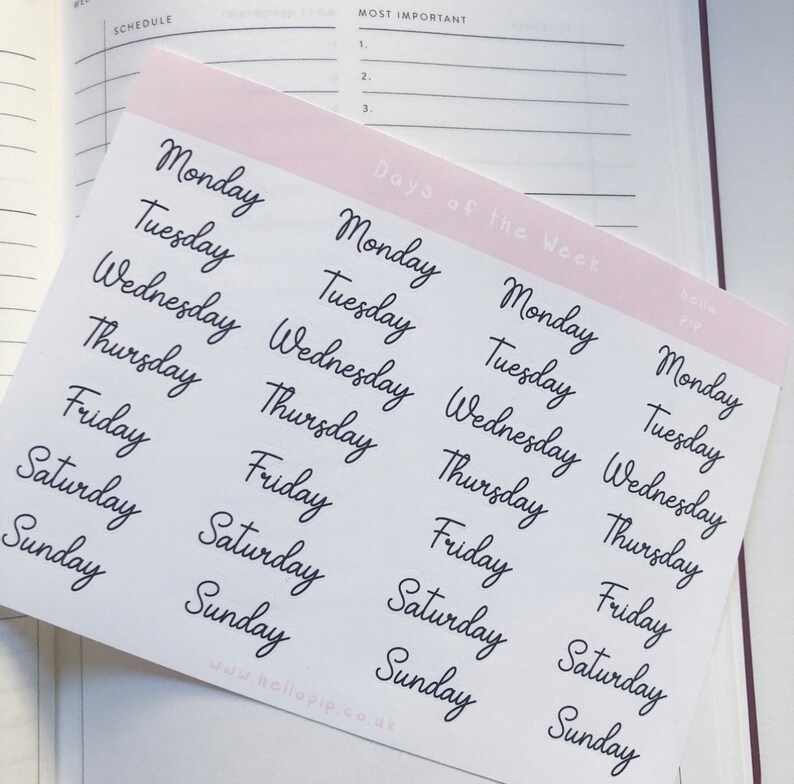 SCHEDULE
MOST IMPORTANT
1.
2.
3.
Days of the Week
hello
pip
Monday
Tuesday
Wednesday
Thursday
Friday
Saturday
Sunday
Monday
Tuesday
Wednesday
Thursday
Friday
Saturday
Sunday
Monday
Tuesday
Wednesday
Thursday
Friday
Saturday
Sunday
Monday
Tuesday
Wednesday
Thursday
Friday
Saturday
Sunday
www.hellopip.co.uk